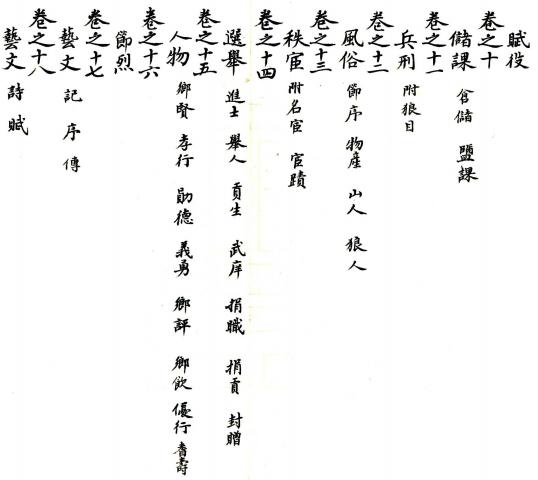 賦役
卷之十
儲課 倉儲 鹽課
卷之十一
兵刑 附狼目
卷之十二
風俗 節序 物産 山人 狼人
卷之十三
秩宦 附名宦 宦蹟
卷之十四
選舉 進士 舉人 貢生 武庠 捐職 捐貢 封贈
卷之十五
人物 鄉賢 孝行 勛德 義勇 鄉評 鄉飲 優行 耆壽
卷之十六
節烈
卷之十七
藝文 記 序 傳
卷之十八
藝文 詩 賦